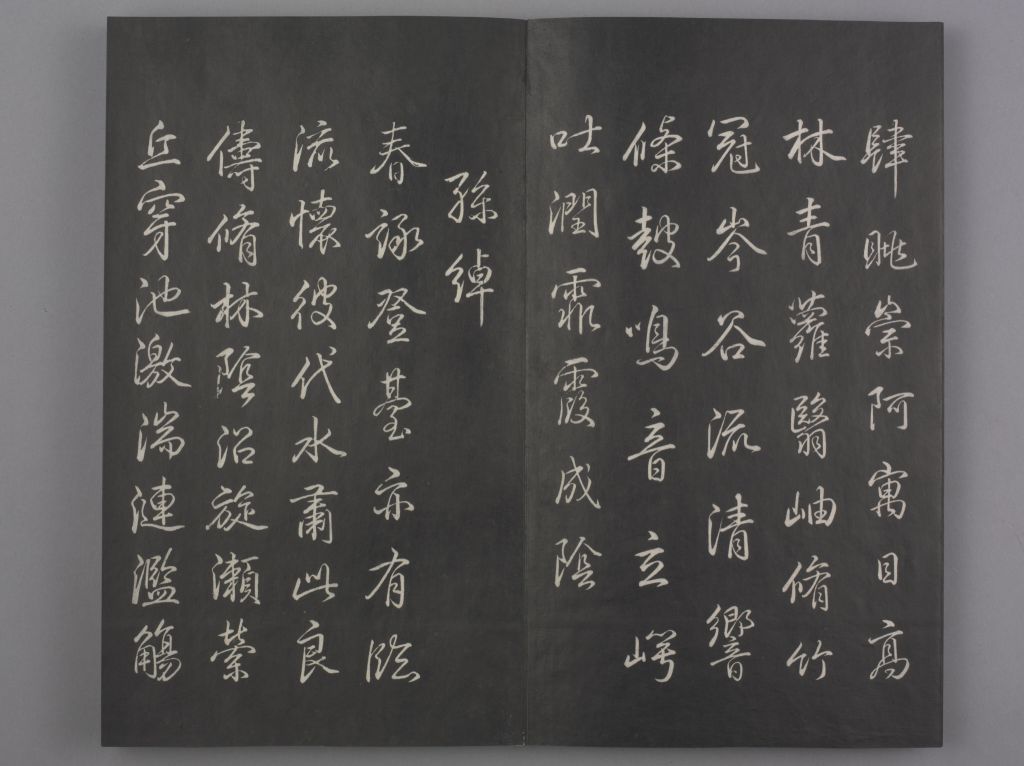 肆眺崇阿寓目高
林青蘿翳岫脩竹
冠岑谷流清響
條鼓鳴音立崿
吐潤霏霞成陰
孫綽
春詠登臺亦有臨
流懷彼代水肅此良
儔脩林陰沼旋瀨縈
丘穿池激湍連濫觴